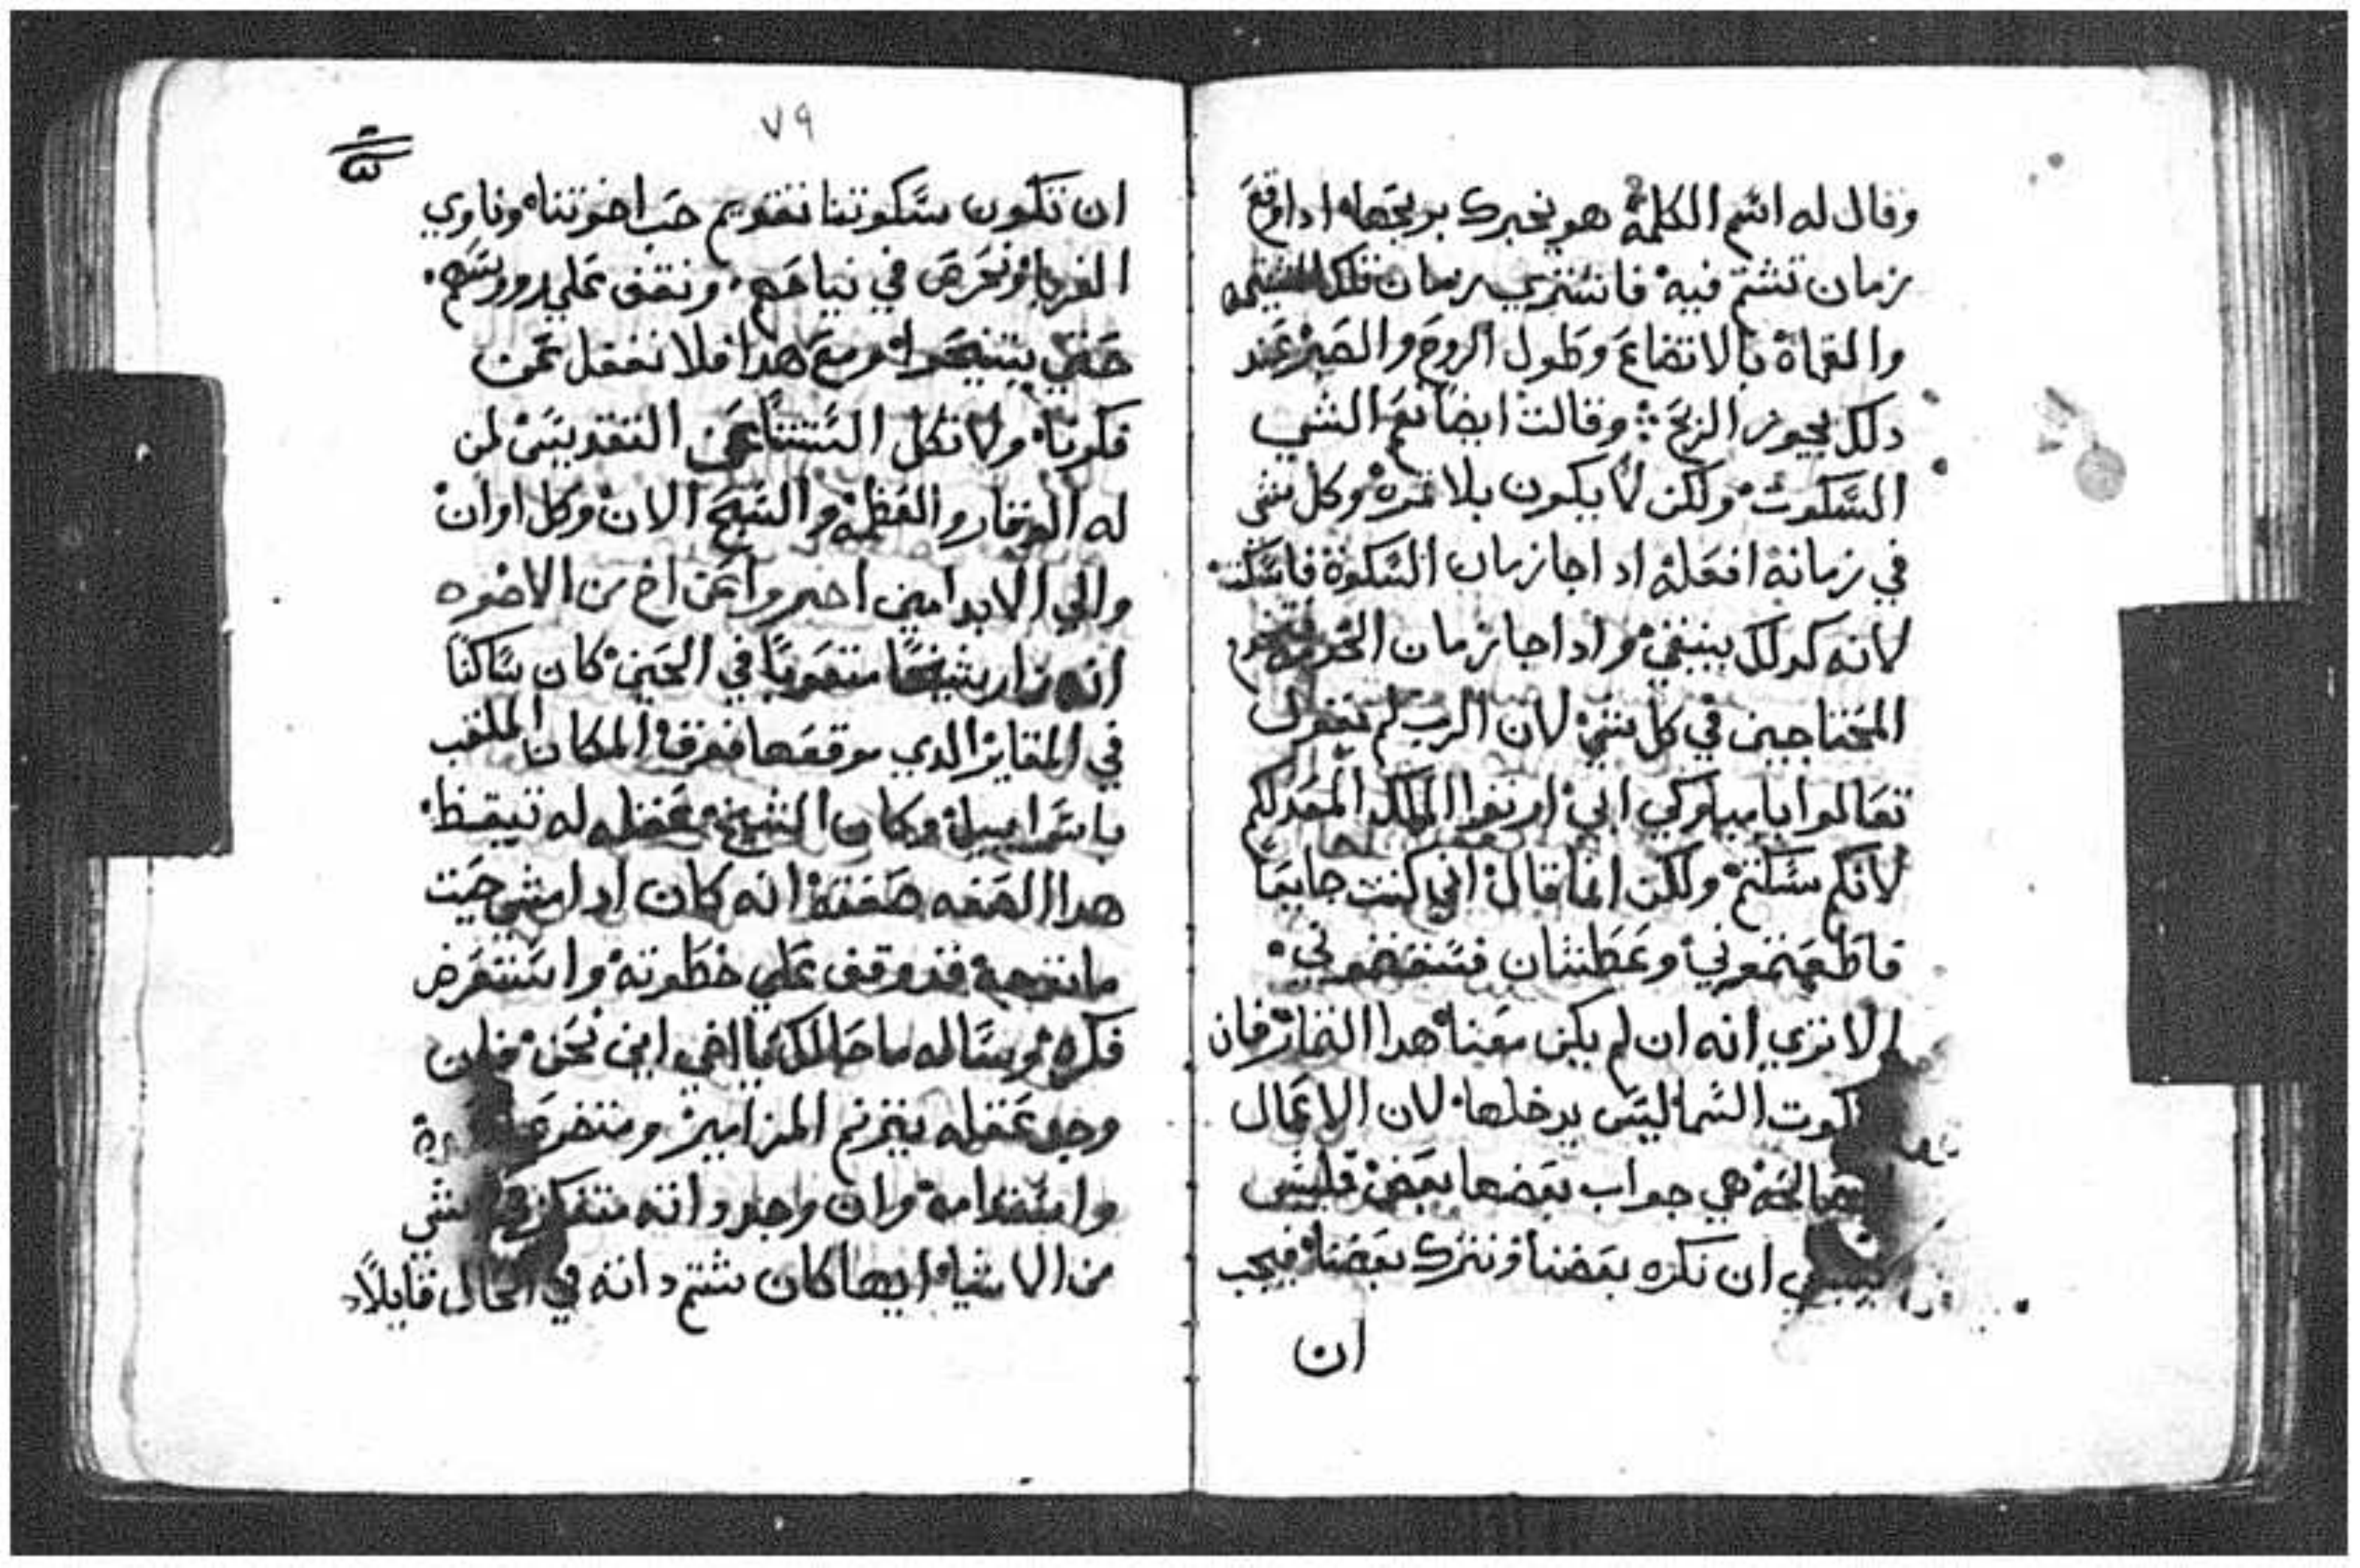 وقال له اسم الكلمة هو يخبرك بربحها ادا وقع
زمان تشتم فيه فاشتري زمان تلك الشتيمه
والعماة بالاتضاع وطول الروح والصبر عند
دلك يجوز الربح وقالت ايضا نعم الشي
السكوت ولكن لا يكون بلا ثمره وكل شي
في زمانه افعله ادا جا زمان السكوة فاسكت
لانه كدلك ينبغي وادا جا زمان
المحتاجين في كل شي لان الرب لم يقول
تعالوا يا مباركي ابي ارتوا الملك المعد لكم
لانكم سكتم ولكن انما قال اني كنت جايعا
فاطعمتموني وعطشان فسقيتموني
الا تري انه ان لم يكن معنا هدا الثمار فان
كوت السما ليس يدخلها لان الاعمال
الصالحه هي جواب بعضها بعض فليس
ينبغي ان نكره بعضنا ونترك بعضنا فيجب
ان
٧٩
ان تكون سكوتنا تقويم حب اخوتنا وناوي
الغربا ونحرص في نياحهم ونقف علي رووسهم
حتي يتنيحوا ومع هدا فلا نغفل عن
فكرنا ولا تكل السنتنا عن التقديس لمن
له الوقار والعظمه والتسبيح الان وكل اوان
والي الابد امين اخبروا عن اخ من الاخوه
انه زار شيخا متعوبا في الحين كان ساكنا
في المقابر الدي موقعها فرقة المكان الملقب
باسراييل وكان الشيخ عقله له تيقظ
هدا الصفه صفته انه كان ادا مشي حيت
ما توجه قد وقف علي خطوته واستعرض
فكره وساله ما حالك يا اخي اين نحن فان
وجد عقله يترنم المزامير
وان وجد داته متفكر شي
من الاشيا ايها كان شتم داته في الحال قايلا